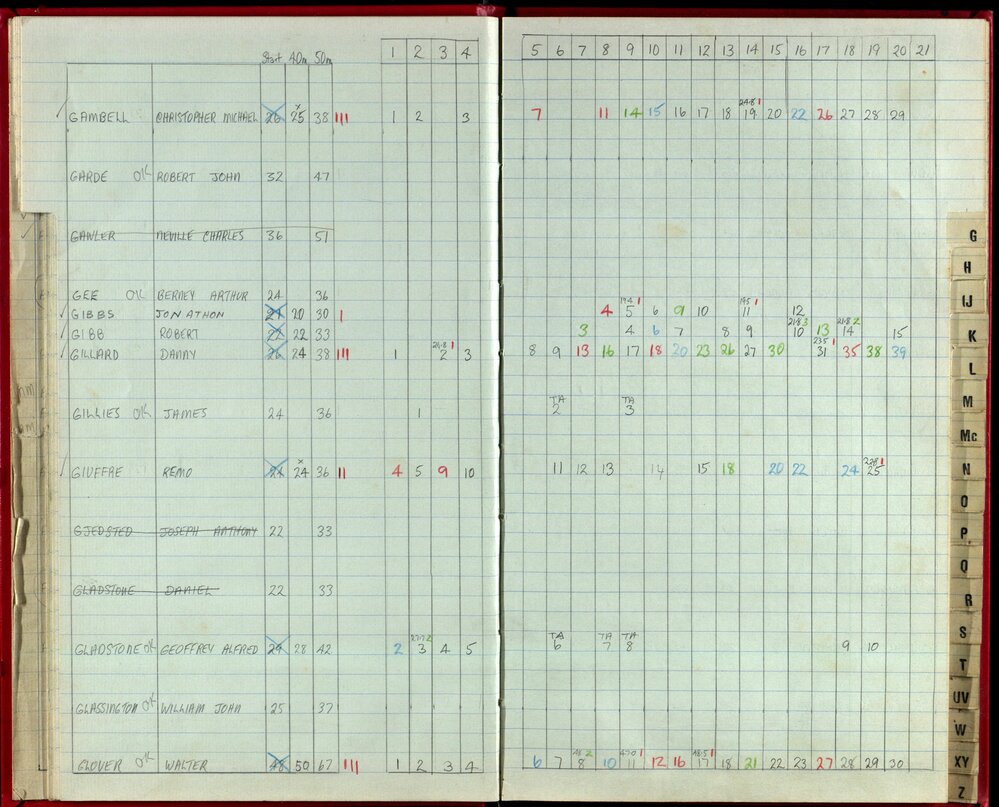 Start 40m 50m 1 2 3 4 5 6 7 8 9 10 11 12 13 14 15 16 17 18 19 20 21
24.8 1
GAMBELL CHRISTOPHER MICHAEL 26 25 38 III 1 2 3 7 11 14 15 16 17 18 19 20 22 26 27 28 29
GARDE OK ROBERT JOHN 32 47
GAWLER NEVILLE CHARLES 36 51
G
H
GEE OK BERNEY ARTHUR 24 36
IJ
19.4 1 19.5 1
GIBBS JONATHON 21 20 30 I 4 5 6 9 10 11 12
21.8 3 21.8 2
GIBB ROBERT 22 22 33 3 4 6 7 8 9 10 13 14 15
K
21.8 1 23.5 1
GILLARD DANNY 26 24 38 III 1 2 3 8 9 13 16 17 18 20 23 26 27 30 31 35 38 39
L
TA TA
GILLIES OK JAMES 24 36 1 2 3
M
Mc
22.8 1
GIUFFRE REMO 24 24 36 II 4 5 9 10 11 12 13 14 15 18 20 22 24 25
N
O
GJEDSTED JOSEPH ANTHONY 22 33
P
Q
GLADSTONE DANIEL 22 33
R
S
27.7 2 TA TA TA
GLADSTONE OK GEOFFREY ALFRED 29 28 42 2 3 4 5 6 7 8 9 10
T
UV
GLASSINGTON OK WILLIAM JOHN 25 37
W
GLOVER OK WALTER 48 50 67 III 1 2 3 4 6 7 8 10 11 12 16 17 18 21 22 23 27 28 29 30
XY
Z